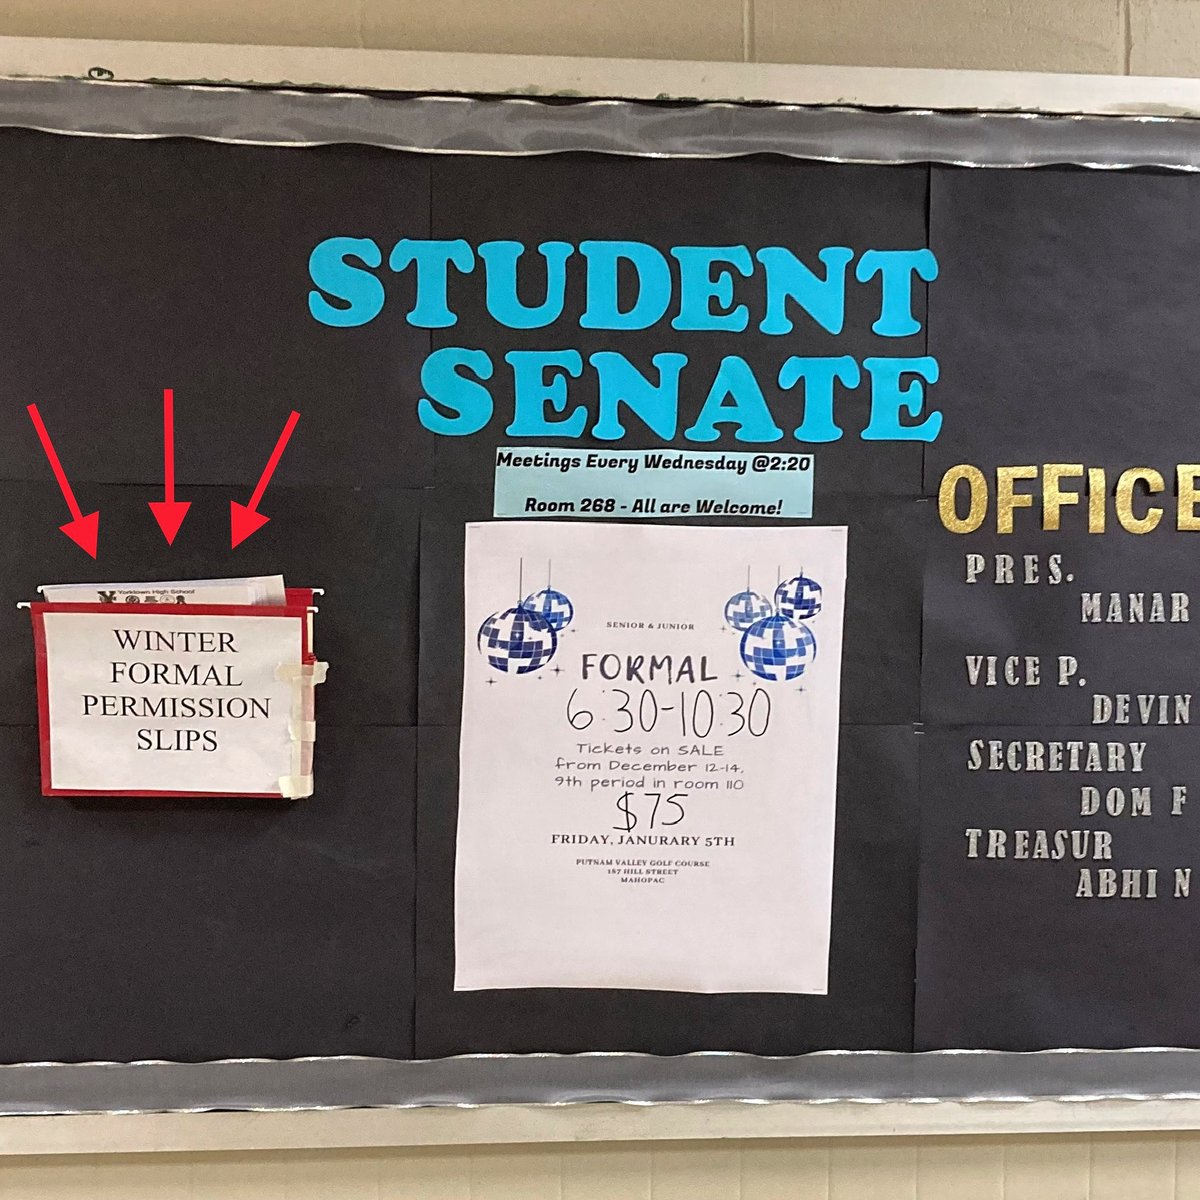 STUDENT
SENATE
Meetings Every Wednesday @2:20
Room 268 - All are Welcome!
Yorktown High School
WINTER
FORMAL
PERMISSION
SLIPS
SENIOR & JUNIOR
FORMAL
6:30-10:30
Tickets on SALE
from December 12-14,
9th period in room 110
$75
FRIDAY, JANURARY 5TH
PUTNAM VALLEY GOLF COURSE
187 HILL STREET
MAHOPAC
OFFICE
PRES.
MANAR
VICE P.
DEVIN
SECRETARY
DOM F
TREASUR
ABHI N